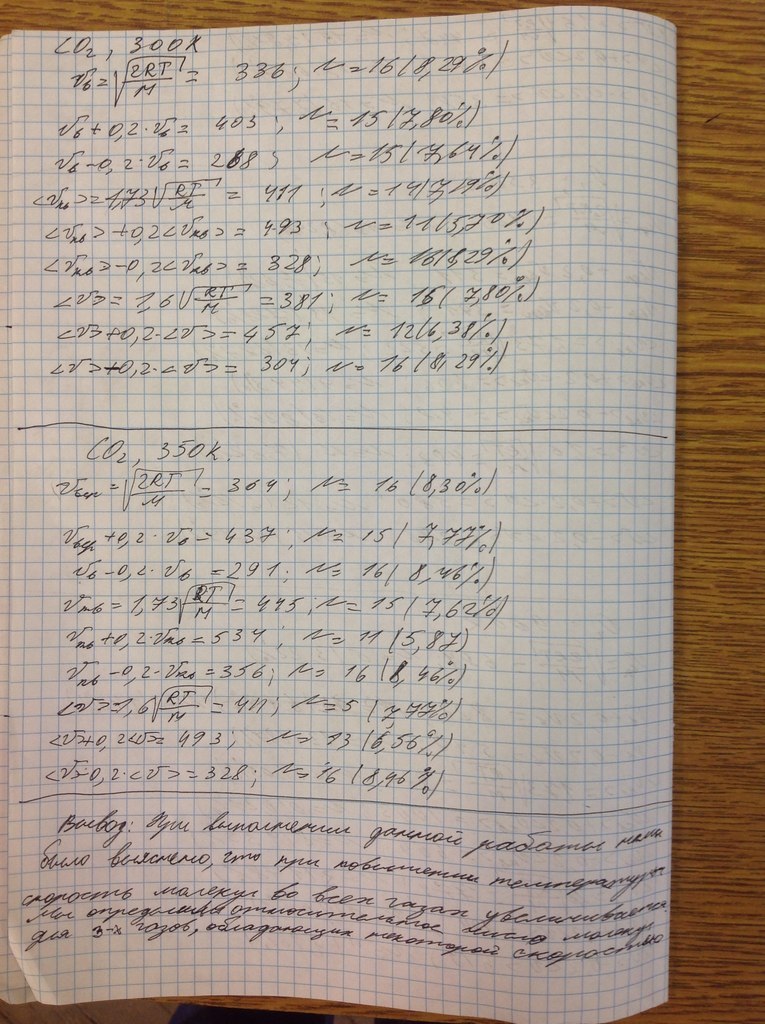 CO₂, 300К
vв = √(2RT/M) = 336; N = 16 (8,29%)
vв + 0,2·vв = 403; N = 15 (7,80%)
vв - 0,2·vв = 268; N = 15 (7,64%)
<vкв> = 1,73√(RT/M) = 411; N = 14 (7,19%)
<vкв> + 0,2<vкв> = 493; N = 11 (5,70%)
<vкв> - 0,2<vкв> = 328; N = 16 (8,29%)
<v> = 1,6√(RT/M) = 381; N = 16 (7,80%)
<v> + 0,2·<v> = 457; N = 12 (6,38%)
<v> - 0,2·<v> = 304; N = 16 (8,29%)
CO₂, 350К.
vвер = √(2RT/M) = 364; N = 16 (8,30%)
vвер + 0,2·vв = 437; N = 15 (7,77%)
vв - 0,2·vв = 291; N = 16 (8,46%)
vкв = 1,73√(RT/M) = 445; N = 15 (7,62%)
vкв + 0,2·vкв = 534; N = 11 (5,87)
vкв - 0,2·vкв = 356; N = 16 (8,46%)
<v> = 1,6√(RT/M) = 411; N = 5 (7,77%)
<v> + 0,2<v> = 493; N = 13 (6,56%)
<v> - 0,2·<v> = 328; N = 16 (8,96%)
Вывод: При выполнении данной работы нами
было выяснено, что при повышении температуры
скорость молекул во всех газах увеличивается.
Мы определили относительное число молекул
для 3-х газов, обладающих некоторой скоростью